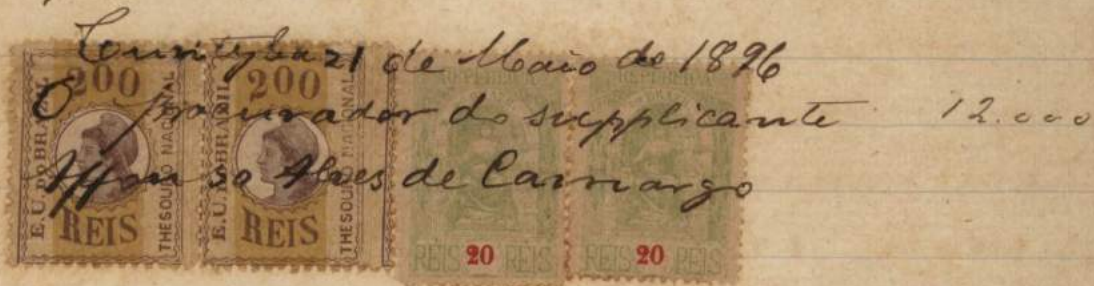 Curityba 21 de Maio de 1896
O procurador do supplicante 12.000
Affonso Alves de Camargo
200 200
E.U.DO BRAZIL THESOURO NACIONAL E.U.DO BRAZIL THESOURO NACIONAL
REIS REIS
RÉIS 20 RÉIS RÉIS 20 RÉIS